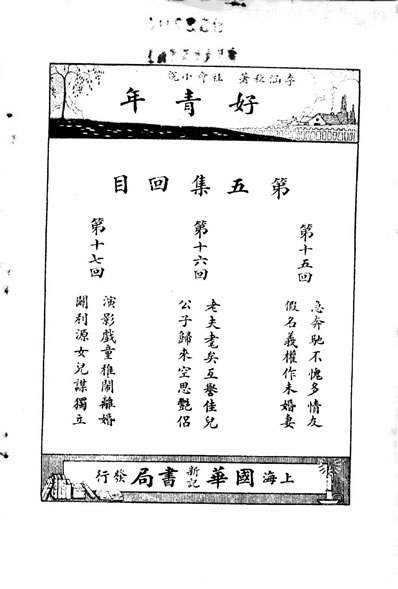 李涵秋著 社會小說
好青年
第五集回目
第十五回
急奔馳不愧多情友
假名義權作未婚妻
第十六回
老夫耄矣互譽佳兒
公子歸來空思艷侶
第十七回
演影戲童稚鬧離婚
闢利源女兒謀獨立
上海國華新記書局發行